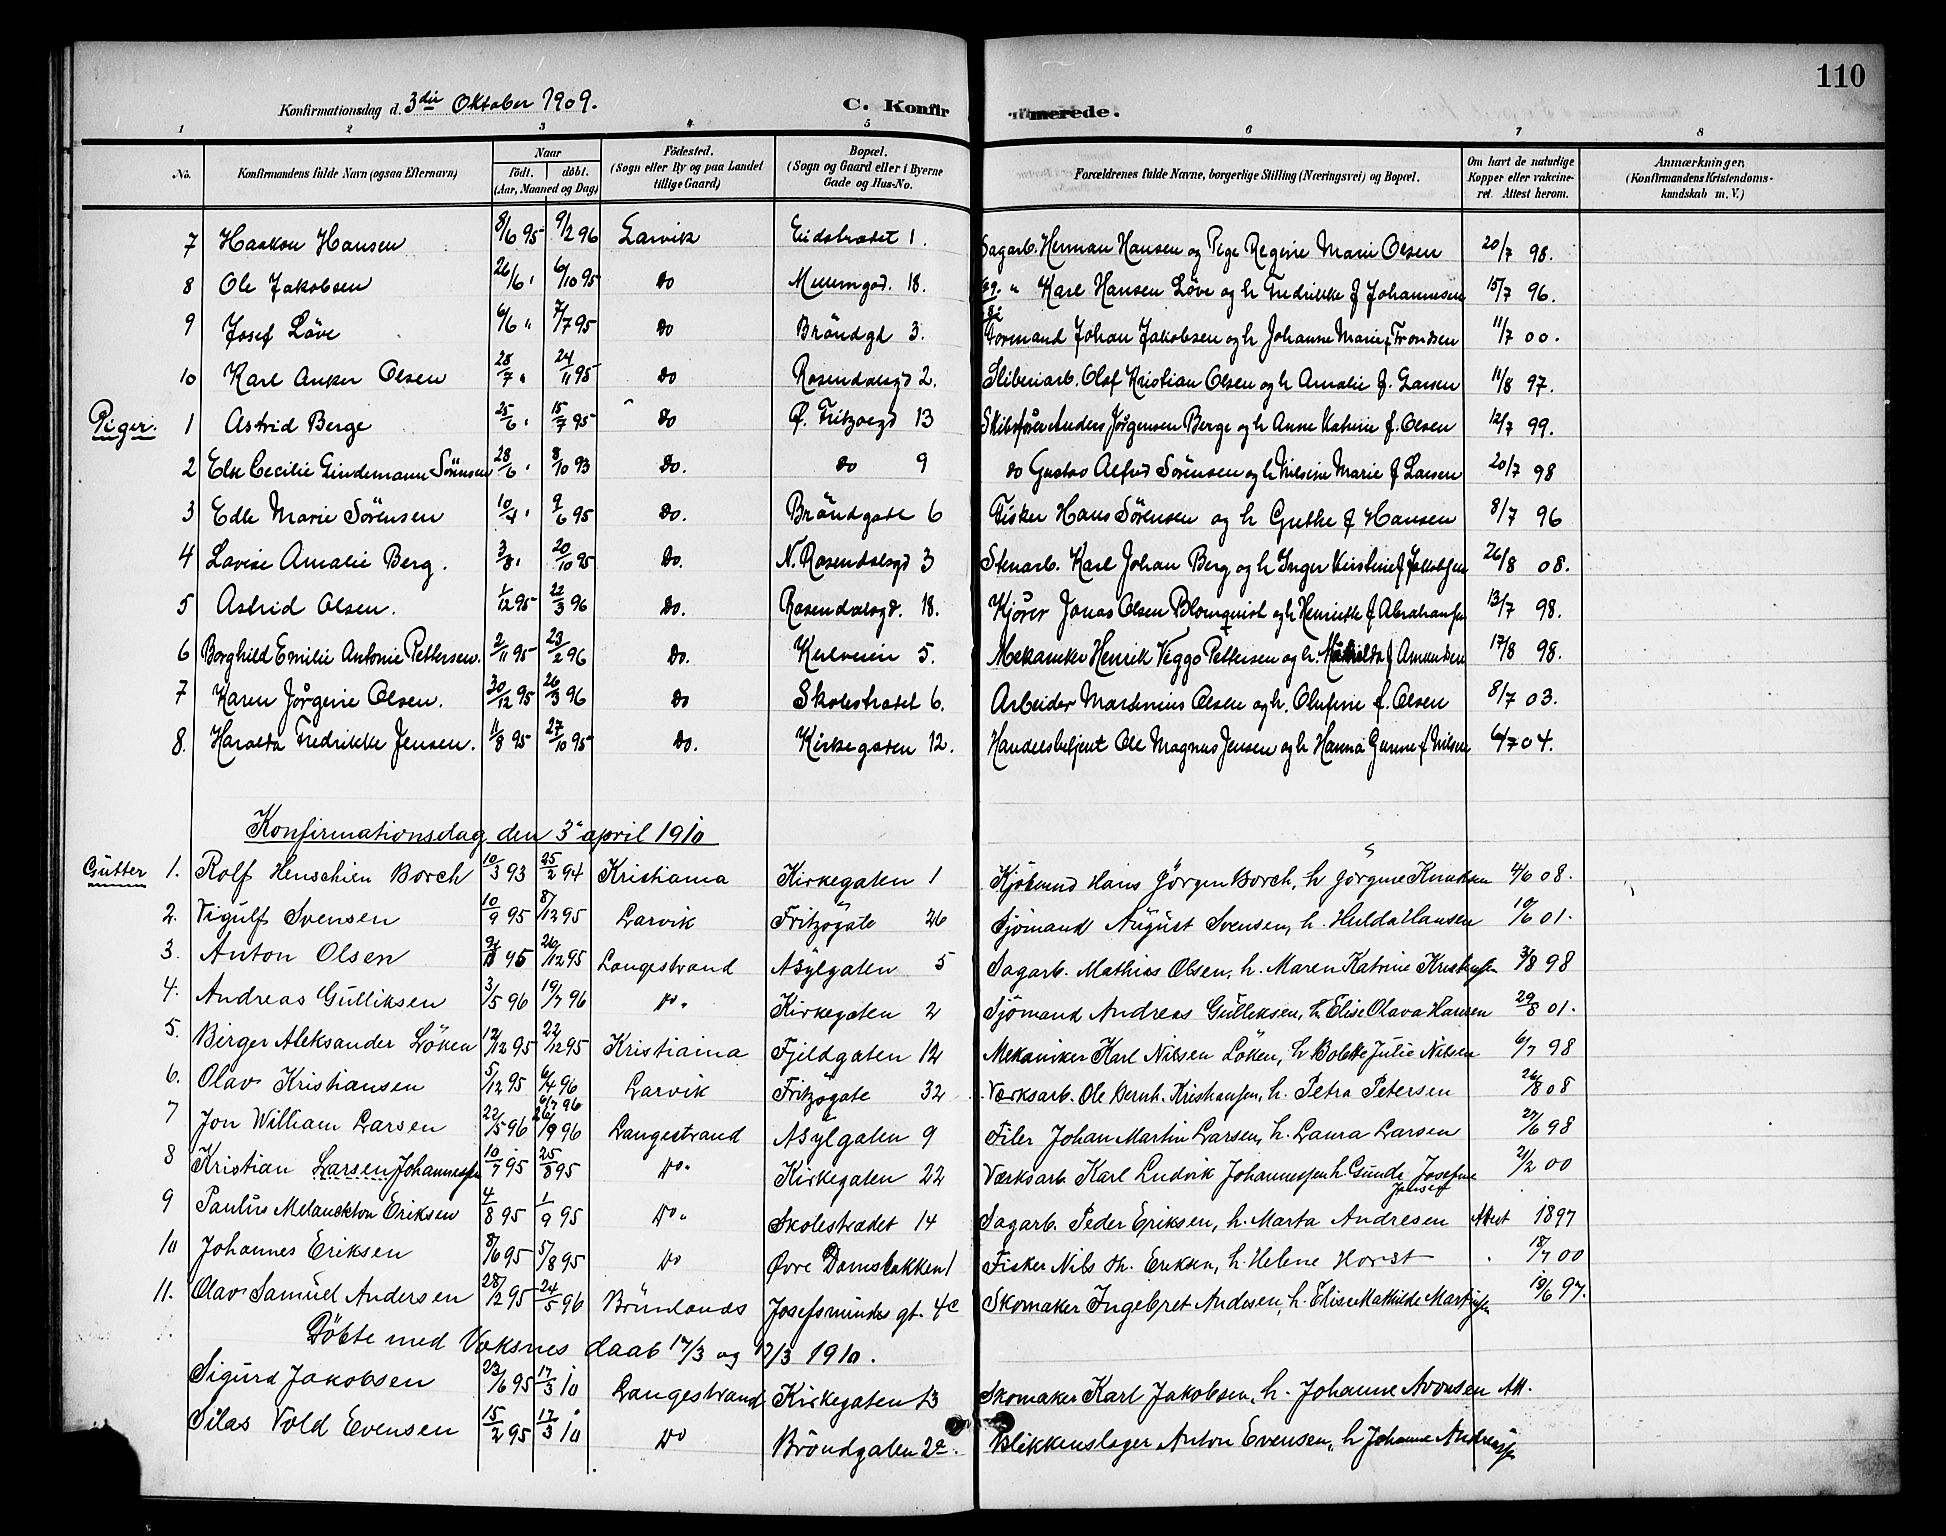 110
Konfirmationsdag d. 3die Oktober 1909. C. Konfirmerede.
1 2 3 4 5 6 7 8
No. Konfirmandens fulde Navn (ogsaa Efternavn) Naar født. døbt. (Aar, Maaned og Dag) Fødested. (Sogn eller By og paa Landet tillige Gaard) Bopæl. (Sogn og Gaard eller i Byerne Gade og Hus-No. Forældrenes fulde Navne, borgerlige Stilling (Næringsvei) og Bopæl. Om havt de naturlige Kopper eller vakcineret. Attest herom. Anmærkninger, (Konfirmandens Kristendomskundskab m. V.)
7 Haakon Hansen 8/6 95 9/2 96 Larvik Eidstrædet 1. Sagarb. Herman Hansen og Pige Regine Marie Olsen 20/7 98.
8 Ole Jakobsen 26/6 " 6/10 95 Do 18. " Karl Hansen Løve og h Fredrikke f Johannesen 15/7 96.
9 Josef Løve 6/6 " 7/7 95 Do Bröndgd 3. Formand Johan Jakobsen og h Johanne Marie f Trondsen 11/7 00.
10 Karl Anker Olsen 28/7 " 24/11 95 Do Rosendalsgd 2. Sliberiarb. Olaf Kristian Olsen og h Amalie f. Larsen 11/8 97.
Piger. 1 Astrid Berge 25/6 " 15/7 95 Do Ø. Fritzøegd 13 Skibsfører Anders Jørgensen Berge og h Anne Katrine f. Olsen 12/7 99.
2 Else Cecilie Lindemann Sørensen 28/6 " 8/10 93 Do. do 9 do Gustav Alfred Sørensen og h Nilsine Marie f Larsen 20/7 98
3 Edle Marie Sörensen 10/4 " 9/6 95 Do. Bröndgade 6 Fisker Hans Sörensen og h Grethe f Hansen 8/7 96
4 Lovise Amalie Berg. 3/8 " 20/10 95 Do. N. Rosendalsgd 3 Stenarb. Karl Johan Berg og h Inger Kirstine f Jakobsen 26/8 08.
5 Astrid Olsen. 1/12 95 22/3 96 Do. Rosendalsgd. 18. Kjører Jonas Olsen Blomquist og h Henrikke f Abrahamsen 13/7 98.
6 Borghild Emilie Antonie Pettersen. 2/11 95 23/2 96 Do. Kulveien 5. Mekaniker Henrik Viggo Pettersen og h. Mathilda f Amundsen 17/8 98.
7 Karen Jørgine Olsen. 30/12 95 26/3 96 Do Skolestrædet 6. Arbeider Martinius Olsen og h. Olufine f. Olsen 8/7 03.
8. Haralda Fredrikke Jensen. 11/8 95 27/10 95 Do. Kirkegaten 12. Handelsbetjent Ole Magnus Jensen og h Hanna Gunne f Nilsen 6/7 04.
Konfirmationsdag den 3. april 1910
Gutter 1. Rolf Henschien Borch 10/3 93 25/2 94 Kristiania Kirkegaten 1 Kjøbmd Hans Jörgen Borch, h Jörgine Knudsen 4/6 08.
2. Vigulf Svensen 10/9 95 8/12 95 Larvik Fritzögate 26 Sjömand August Svensen, h. Hulda Hansen 10/6 01.
3. Anton Olsen 95 26/12 95 Langestrand Asylgaten 5 Sagarb. Mathias Olsen, h. Maren Katrine Kristensen 3/8 98
4. Andreas Gulliksen 3/5 96 19/7 96 Do. Kirkegaten 2 Sjömand Andreas Gulliksen, h Elise Olava Hansen 29/8 01.
5. Birger Aleksander Löken 12/12 95 22/12 95 Kristiania Fjeldgaten 12 Mekaniker Karl Nilsen Löken, h Bolette Julie Nilsen 6/7 98
6. Olav Kristiansen 5/12 95 6/4 96 Larvik Fritzögate 32 Værksarb. Ole Bernh. Kristiansen, h. Petra Petersen 26/8 08
6/7 96
7 Jon William Larsen 22/5 96 26/9 96 Langestrand Asylgaten 9 Filer Johan Martin Larsen, h. Laura Larsen 27/6 98
8 Kristian Larsen Johannessen 10/7 95 25/8 95 Do. Kirkegaten 22 Værksarb Karl Ludvik Johannessen h Gunda Josefine Jansen 21/2 00
9 Paulus Melanckton Eriksen 4/8 95 1/9 95 Do. Skolestrædet 14 Sagarb. Peder Eriksen, h. Marta Andresen Attest 1897
10 Johannes Eriksen 8/6 95 5/8 95 Do Øvre Damsbakken 1 Fisker Nils Th. Eriksen, h. Helene Horst " 18/7 00
11. Olav Samuel Andersen 28/12 95 24/5 96 Brunlanäs Josefsmindes gt. 4c Skomaker Ingebret Andersen, h. Elise Mathilde Martinsen 13/6 97.
Döbte med Voksnes daab 17/3 og 17/3 1910.
Sigurd Jakobsen 23/6 95 17/3 10 Langestrand Kirkegaten 13 Skomaker Karl Jakobsen, h. Johanne Avonsen Att.
Silas Vold Evensen 15/2 95 17/3 10 Do Bröndgaten 2a. Blikkenslager Anton Evensen, h Johanne Andreassen